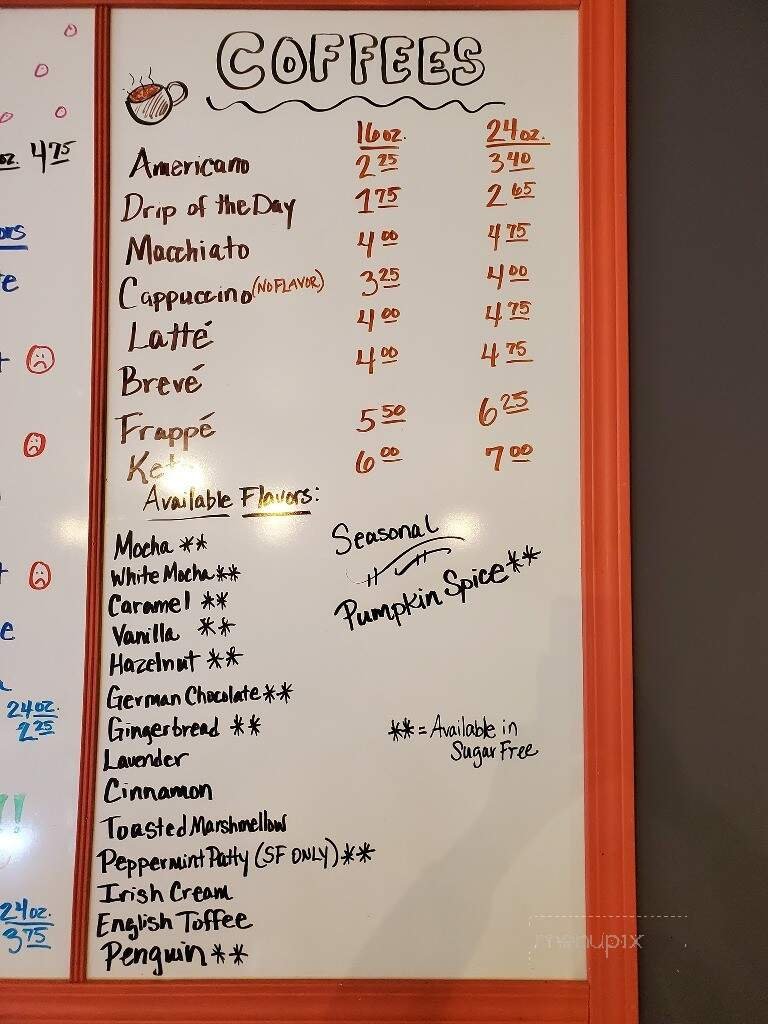 COFFEES
16oz. 24oz.
Americano 2 25 3 40
Drip of the Day 1 75 2 65
Macchiato 4 00 4 75
Cappuccino (NO FLAVOR) 3 25 4 00
Latté 4 00 4 75
Brevé 4 00 4 75
Frappé 5 50 6 25
Keto 6 00 7 00
Available Flavors:
Mocha **
White Mocha **
Caramel **
Vanilla **
Hazelnut **
German Chocolate **
Gingerbread **
Lavender
Cinnamon
Toasted Marshmellow
Peppermint Patty (SF ONLY) **
Irish Cream
English Toffee
Penguin **
Seasonal
Pumpkin Spice **
** = Available in
Sugar Free
oz. 4 75
24oz.
2 25
24oz.
3 75
menupix